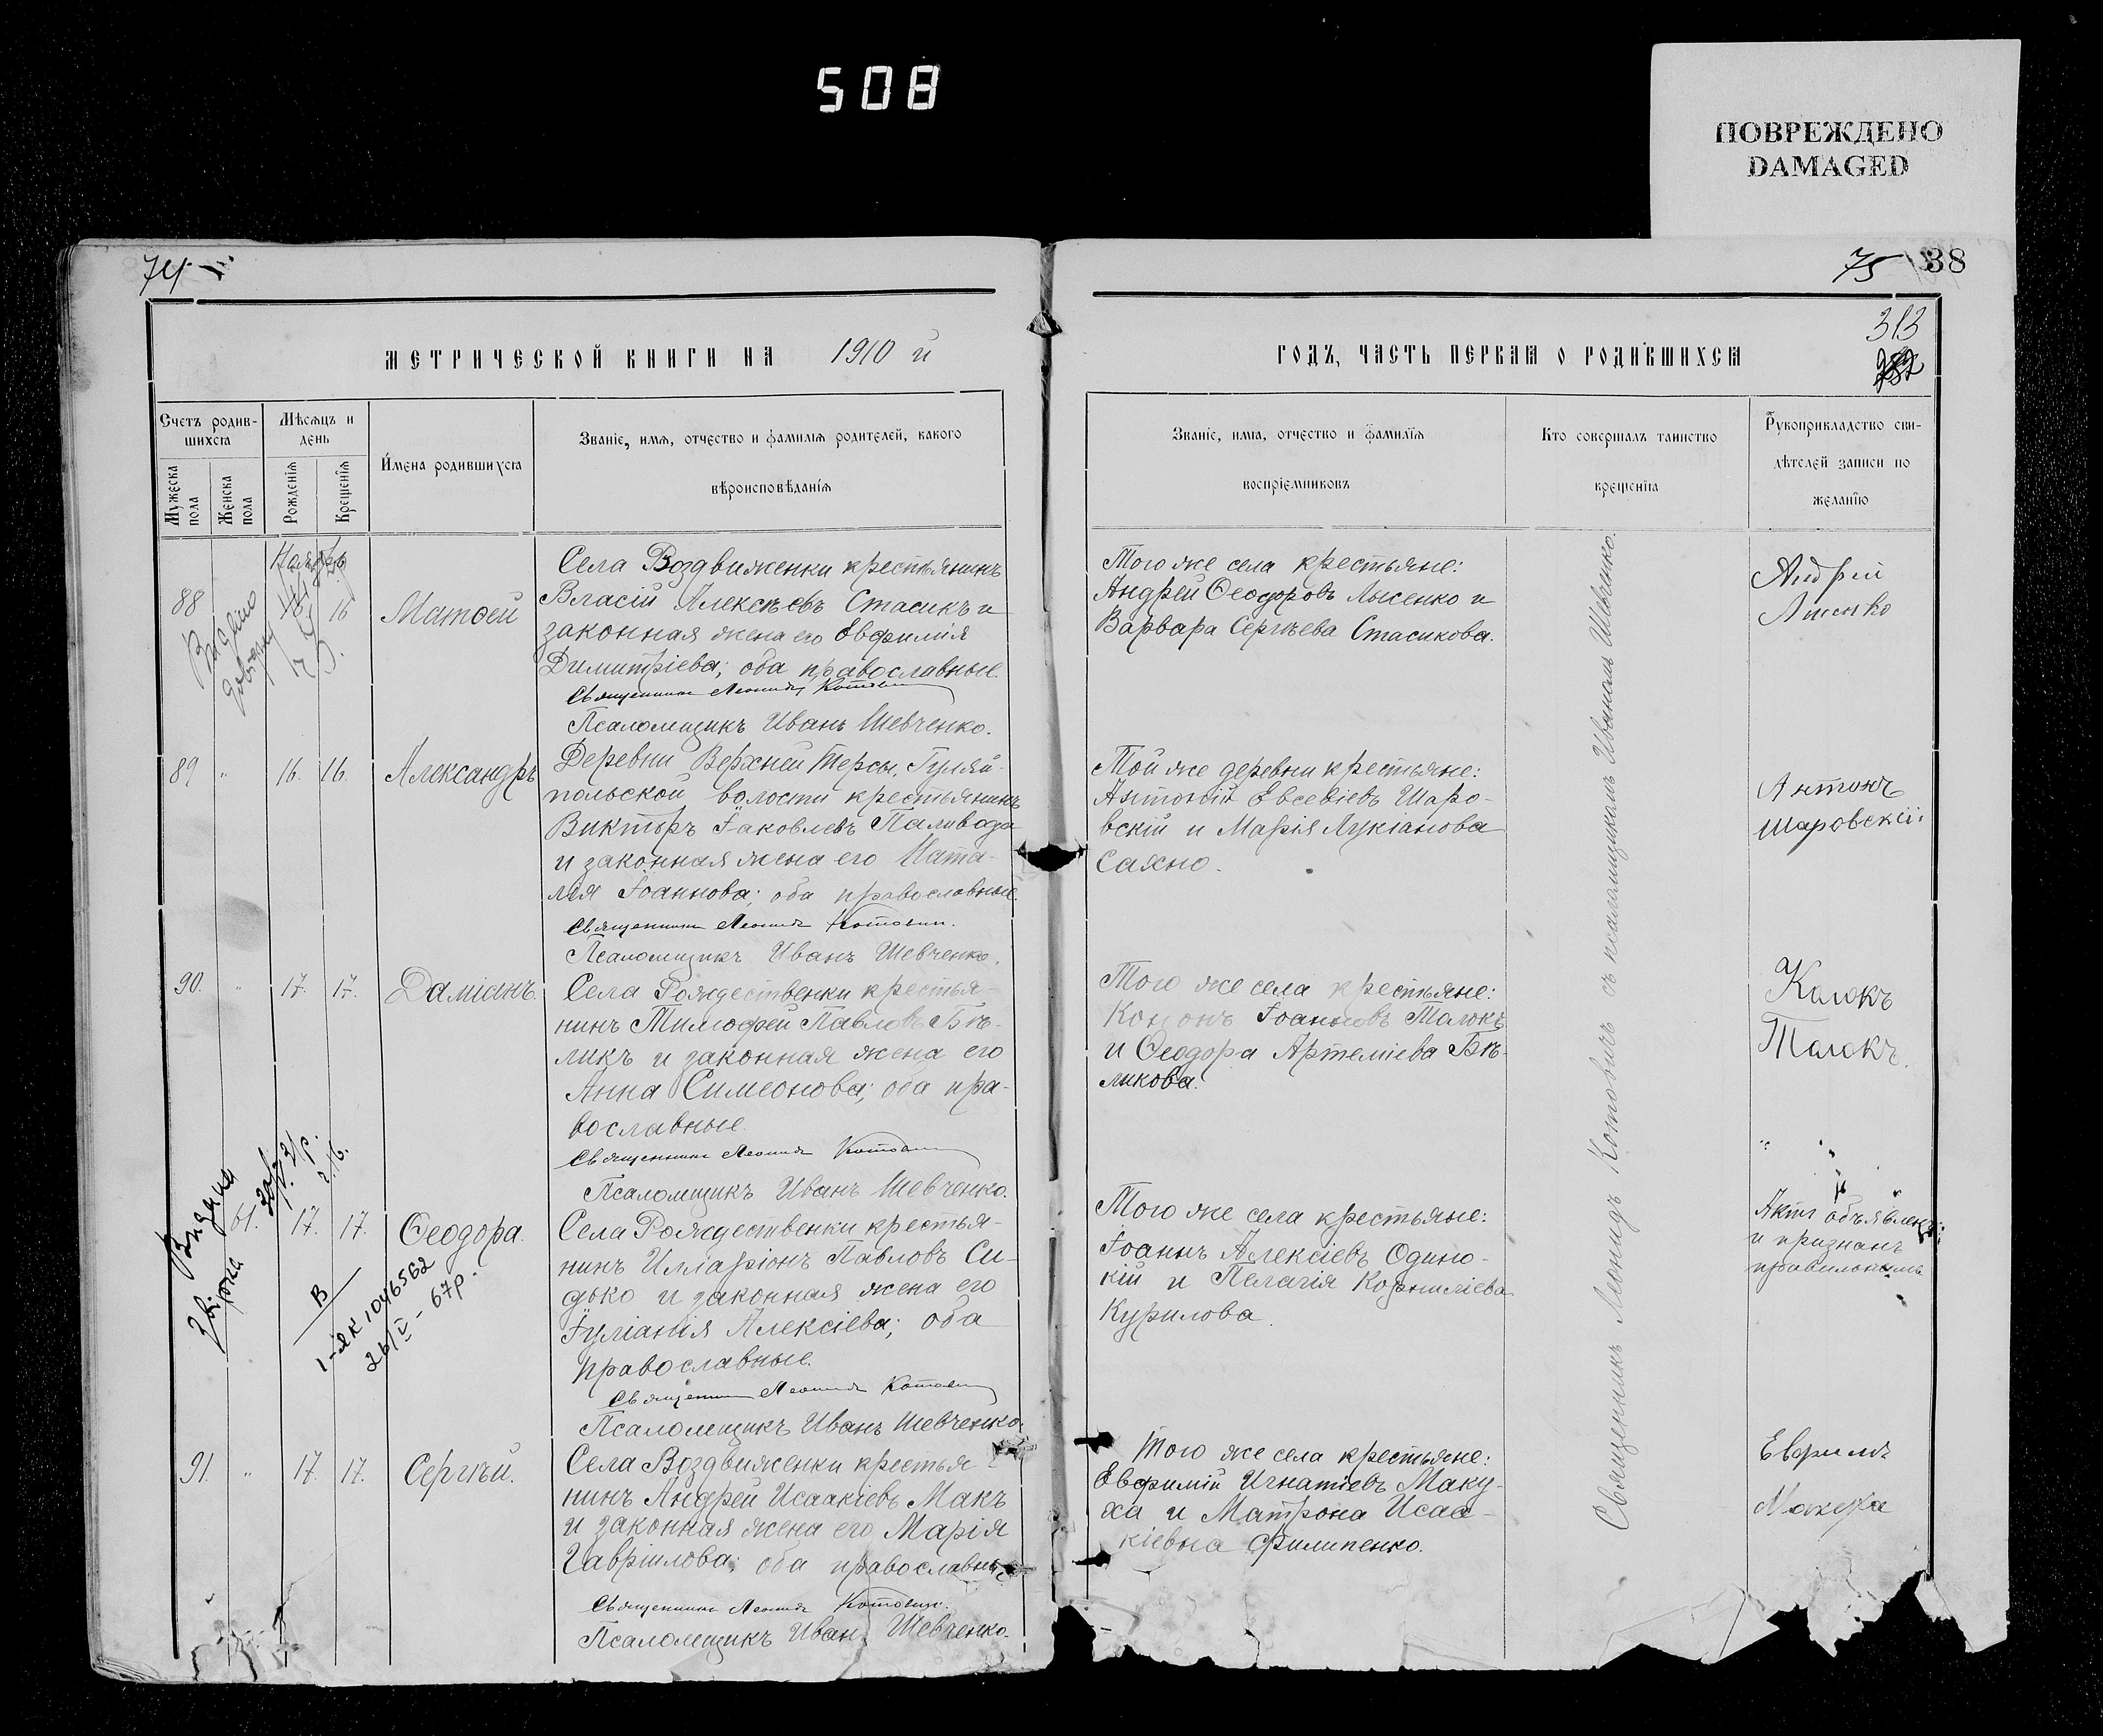 508
ПОВРЕЖДЕНО
DAMAGED
74
75
38
313
МЕТРИЧЕСКОЙ КНИГИ НА 1910 й
ГОДЪ, ЧАСТЬ ПЕРВАЯ О РОДИВШИХСЯ
Счетъ родив-
шихся
Мѣсяцъ и
день
Имена родившихся
Званіе, имя, отчество и фамилія родителей, какого
вѣроисповѣданія
Мужеска
пола
Женска
пола
Рожденія
Крещенія
Званіе, имя, отчество и фамилія
воспріемниковъ
Кто совершалъ таинство
крещенія
Рукоприкладство сви-
дѣтелей записи по
желанію
Ноябрь
88
16
Матѳей
Села Воздвиженки крестьянинъ
Власій Алексѣевъ Стасикъ и
законная жена его Евфимія
Димитріева; оба православные.
Священникъ Леонидъ Котовичъ
Псаломщикъ Иванъ Шевченко.
Того же села крестьяне:
Андрей Ѳеодоровъ Лысенко и
Варвара Сергѣева Стасикова.
Андрей
Лисенко
89 " 16. 16. Александръ
Деревни Верхней Терсы, Гуляй-
польской волости крестьянинъ
Викторъ Іаковлевъ Паливода
и законная жена его Ната-
лія Іоаннова; оба православные.
Священникъ Леонидъ Котовичъ.
Псаломщикъ Иванъ Шевченко.
Той же деревни крестьяне:
Антоній Евсевіевъ Шаро-
вскій и Марія Лукіанова
Сахно.
Антонъ
Шаровскій
90. " 17. 17. Даміанъ.
Села Рождественки крестья-
нинъ Тимофей Павловъ Бѣ-
ликъ и законная жена его
Анна Симеонова; оба пра-
вославные.
Священникъ Леонидъ Котовичъ
Псаломщикъ Иванъ Шевченко.
Того же села крестьяне:
Кононъ Іоанновъ Талокъ
и Ѳеодора Артеміева Бѣ-
ликова.
Талокъ.
Видана
61. 17. 17. Ѳеодора.
1-ЯК 1046562
26/V - 67р.
Села Рождественки крестья-
нинъ Илларіонъ Павловъ Си-
дько и законная жена его
Іуліанія Алексіева; оба
православные.
Священникъ Леонидъ Котовичъ
Псаломщикъ Иванъ Шевченко.
Того же села крестьяне:
Іоаннъ Алексіевъ Одино-
кій и Пелагія Корниліева
Курилова.
Актъ объявленъ
и признанъ
правильнымъ
91. " 17. 17. Сергѣй.
Села Воздвиженки крестья-
нинъ Андрей Исаакіевъ Макъ
и законная жена его Марія
Гавріилова; оба православные
Священникъ Леонидъ Котовичъ.
Псаломщикъ Иванъ Шевченко.
Того же села крестьяне:
Евфимій Игнатіевъ Маку-
ха и Матрона Исаа-
кіевна Филипенко.
Евфимъ
Макуха
Священникъ Леонидъ Котовичъ съ псаломщикомъ Иваномъ Шевченко.